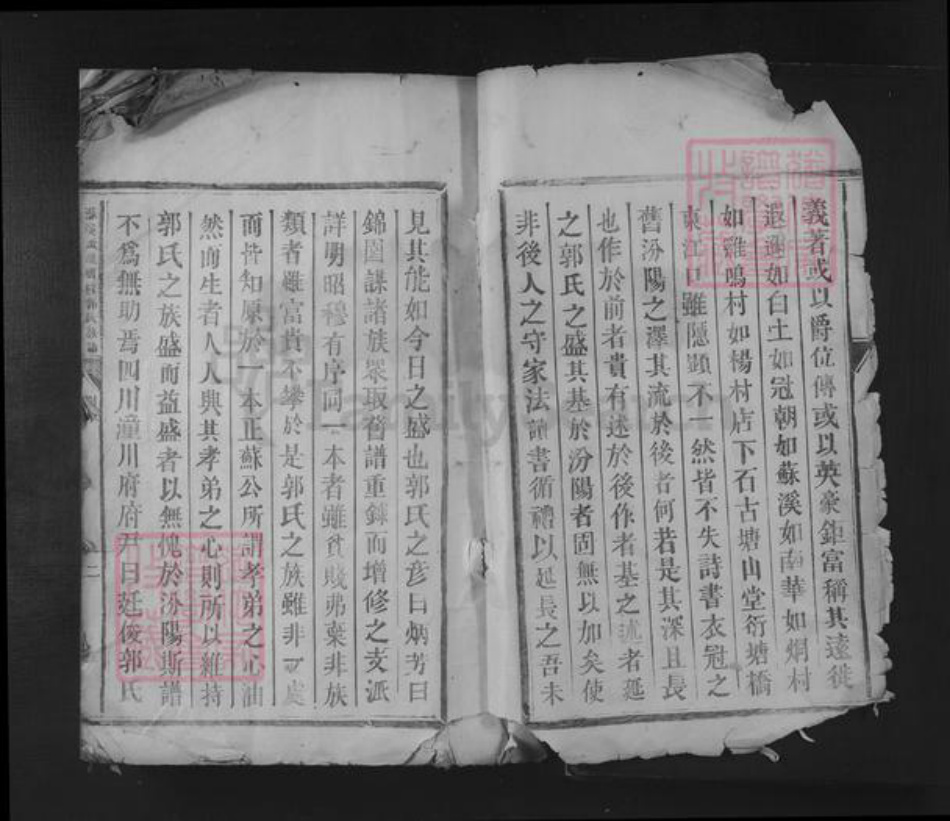 義著或以爵位傳或以英豪鉅富稱其遠徙
遐邇如白土如冠朝如蘇溪如南華如炯村
如雞鳴村如楊村店下石古塘山堂衍塘橋
東江口雖隱顯不一然皆不失詩書衣冠之
舊汾陽之澤其流於後者何若是其深且長
也作於前者貴有述於後作者基之述者延
之郭氏之盛其基於汾陽者固無以加矣使
非後人之守家法讀書循禮以延長之吾未
見其能如今日之盛也郭氏之彥曰炳芳曰
錦圖謀諸族眾取舊譜重錄而增修之支派
詳明昭穆有序同一本者雖貧賤弗棄非族
類者雖富貴不攀於是郭氏之族雖非一處
而皆知原於一本正蘇公所謂孝弟之心油
然而生者人人興其孝弟之心則所以維持
郭氏之族盛而益盛者以無愧於汾陽斯譜
不爲無助焉四川潼川府府尹日廷俊郭氏